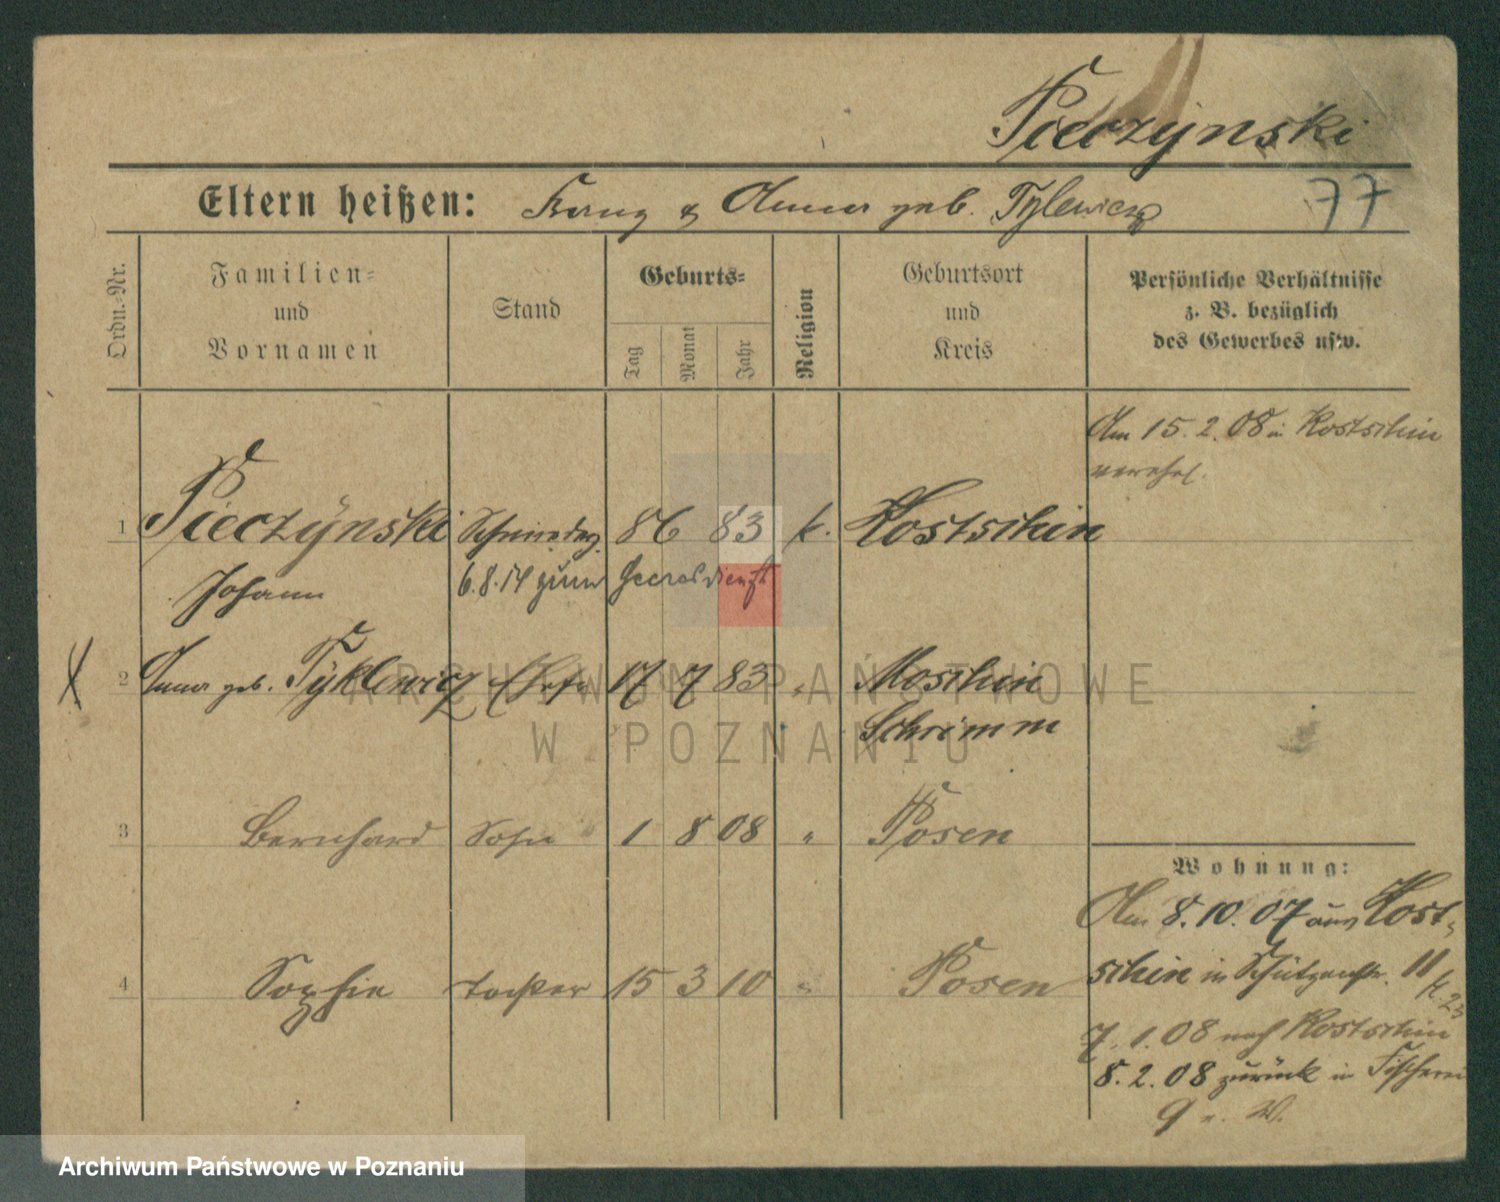 Pieczÿnski
Eltern heißen: Franz & Anna geb. Tylewicz
77
Ordn.-Nr.
Familien-
und
Vornamen
Stand
Geburts-
Tag
Monat
Jahr
Religion
Geburtsort
und
Kreis
Persönliche Verhältnisse
z. B. bezüglich
des Gewerbes usw.
Am 15.2.08 in Kostschin
verehel.
1 Pieczÿnski 86 83 k. Kostschin
Johann 6.8.14 zum Heeresdienst
2 Anna geb. Tÿklewicz Ehefr 17 7 83 " Moschin
Schrimm
3 Bernhard Sohn 1 8 08 " Posen
4 Sophie Tochter 15 3 10 " Posen
Wohnung:
Am 8.10.07 aus Kost-
schin in Schützenstr. 11
7.1.08 nach Kostschin
8.2.08 zurück in Fischerei
9
ARCHIWUM PAŃSTWOWE
W POZNANIU
Archiwum Państwowe w Poznaniu